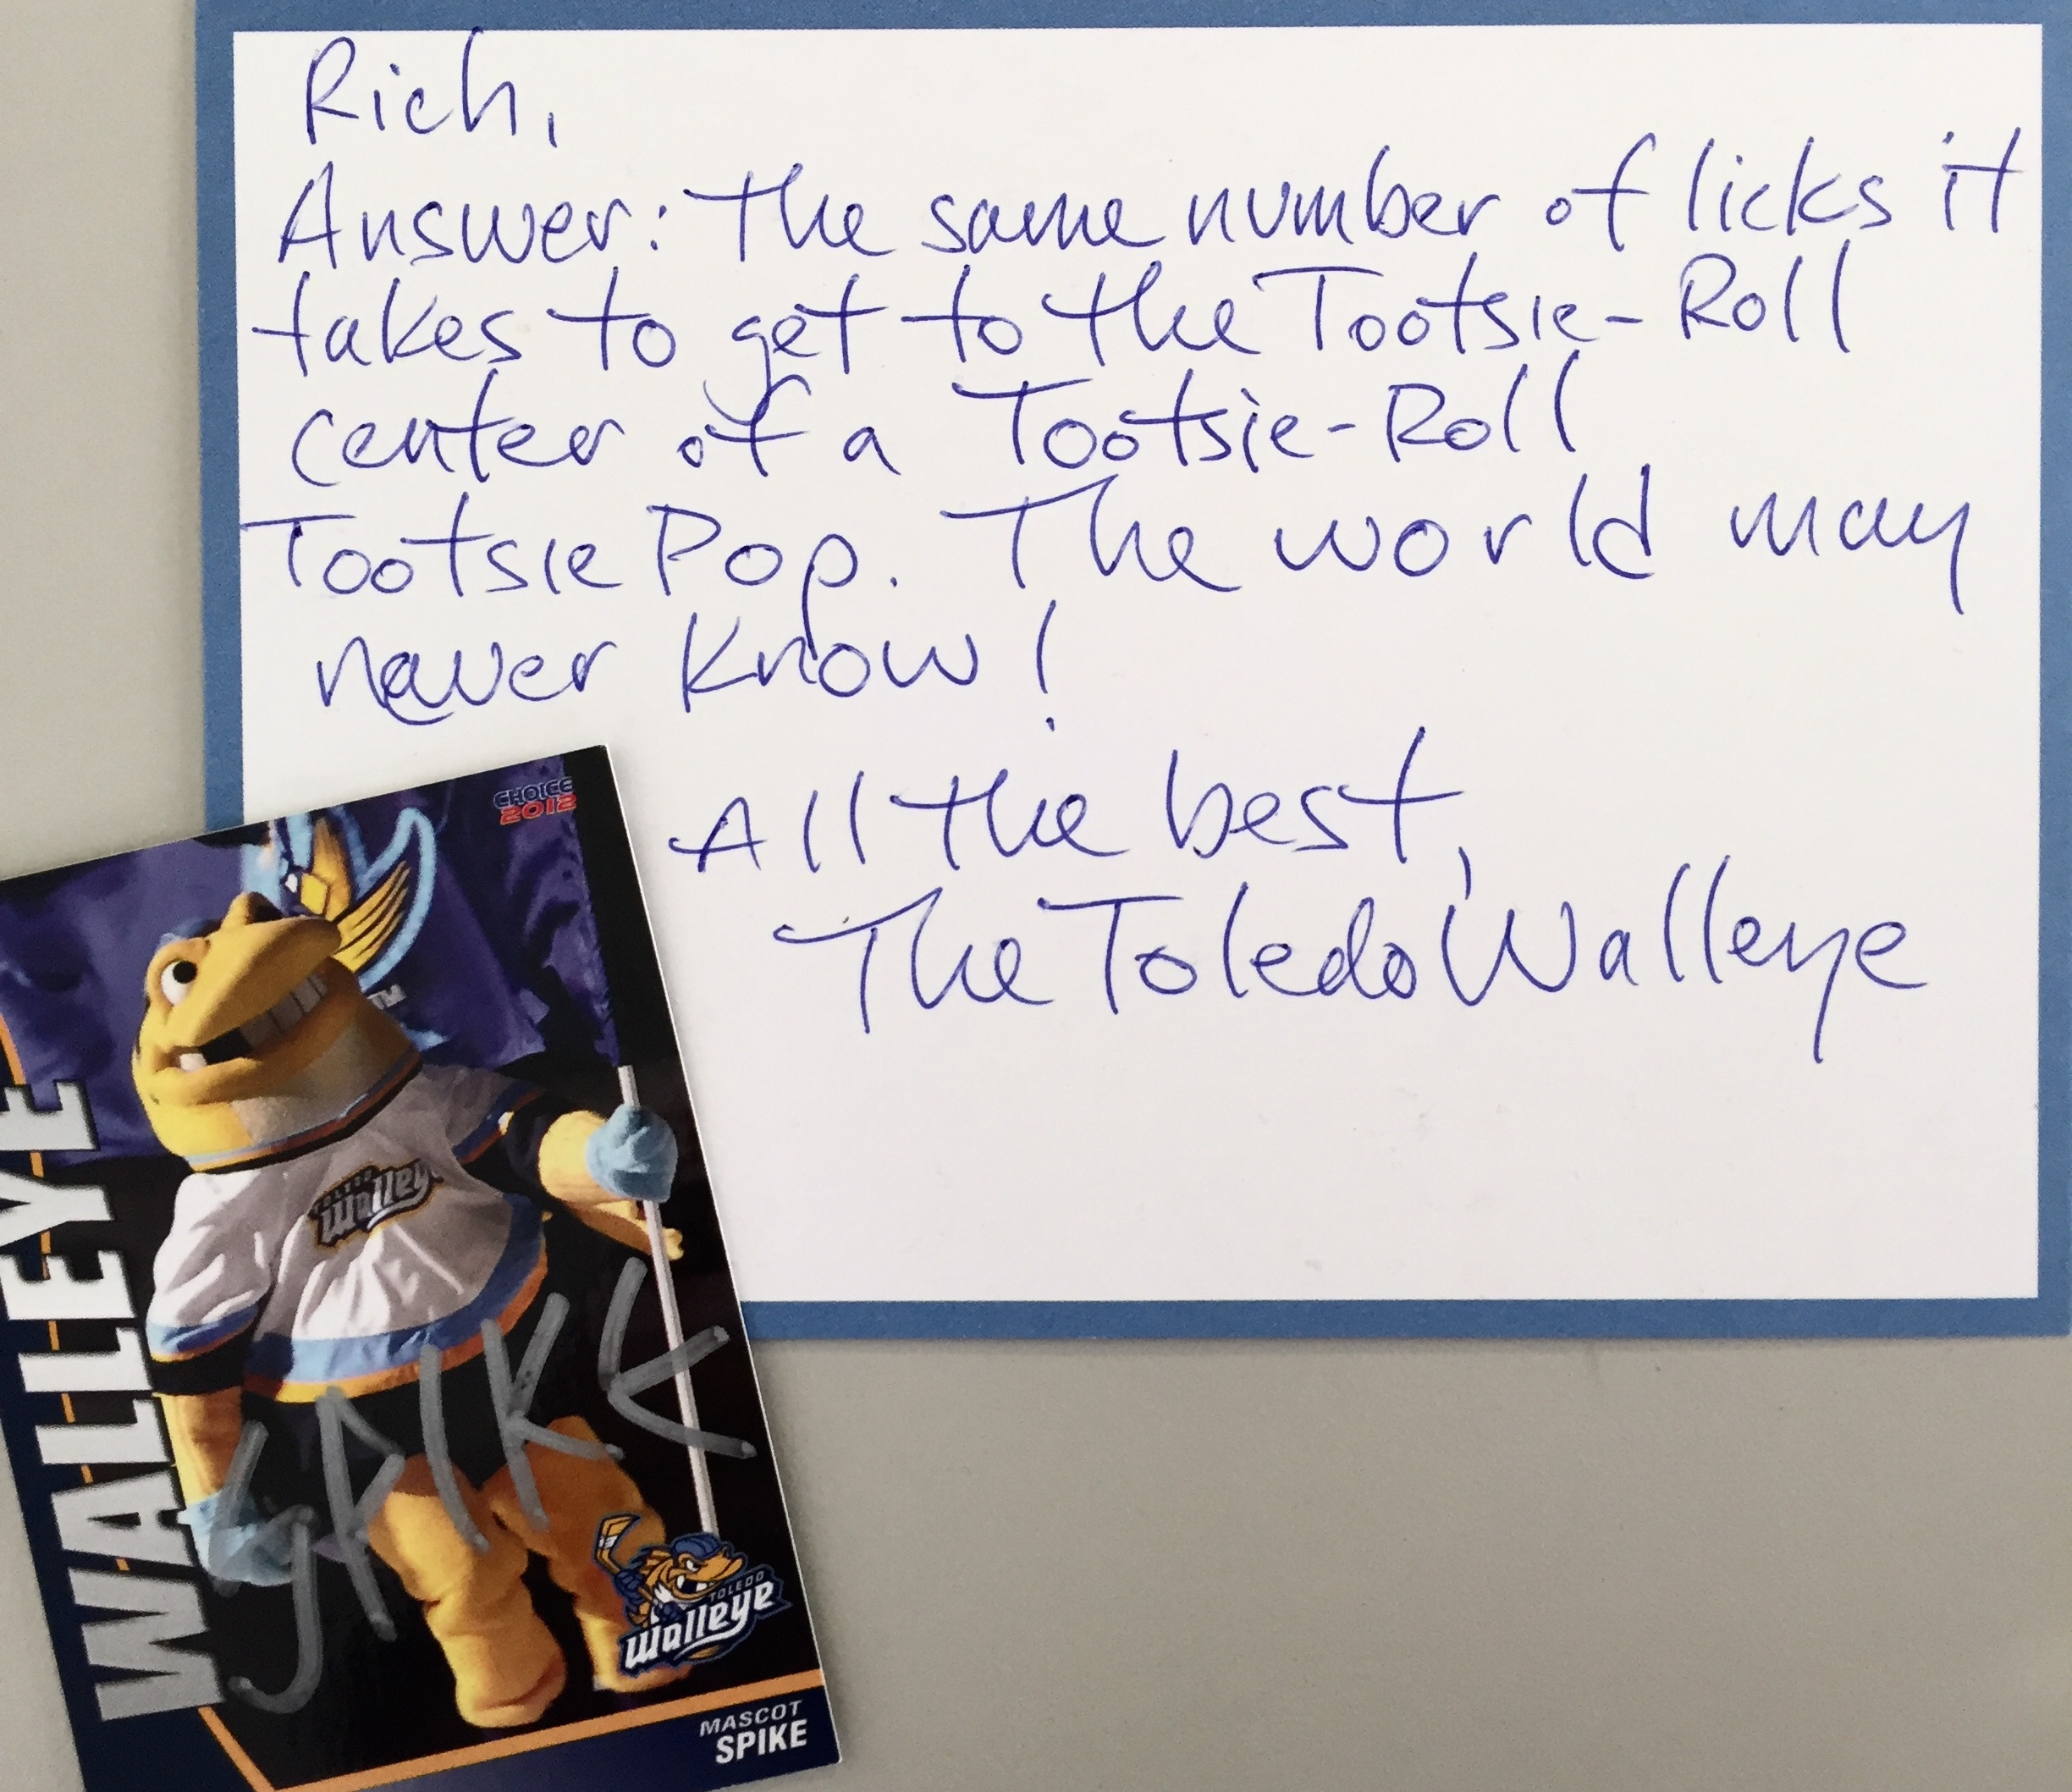 Rich,
Answer: The same number of licks it
takes to get to the Tootsie-Roll
center of a Tootsie-Roll
Tootsie Pop. The world may
never know!
All the best,
The Toledo Walleye
CHOICE
2012
TM
WALLEYE
TOLEDO
Walleye
SPIKE
TOLEDO
Walleye
MASCOT
SPIKE